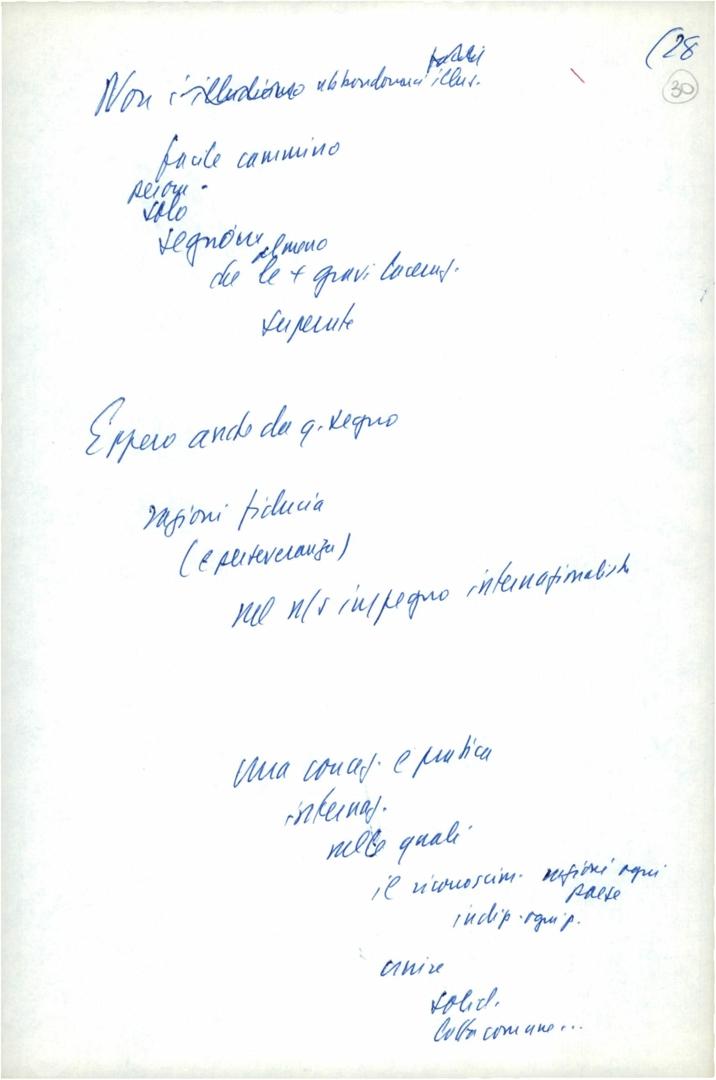 (28
30
Non i illudiamo abbandonarci facili illus.
facile cammino
solo
segnare almeno
che le + gravi laceraz.
superate
Eppero anche da q. segno
ragioni fiducia
(e perseveranza)
nel n/s impegno internazionalista
una concez. e pratica
internaz.
nelle quali
il riconoscim. ragioni ogni
paese
indip. ogni p.
unire
solid.
lotta comune...